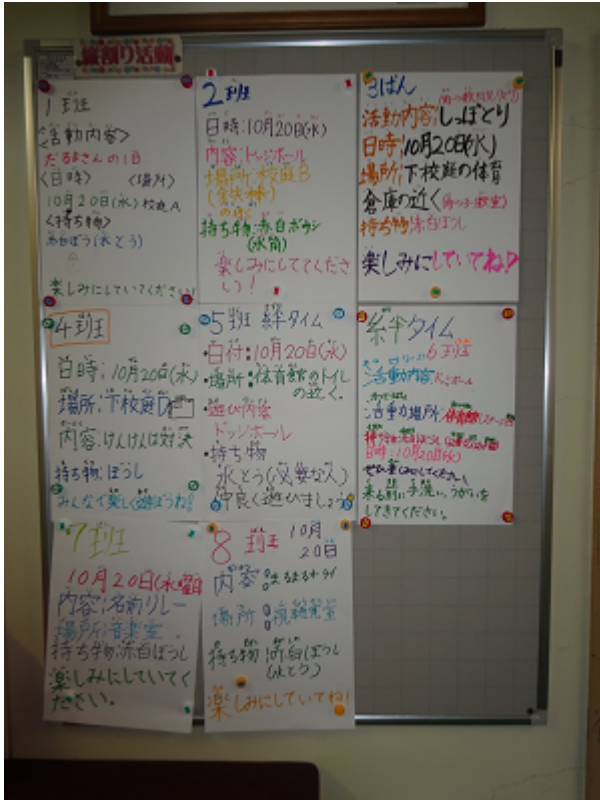 縦割り活動
1班
<活動内容>
だるまさんの1日
<日時> <場所>
10月20日(水) 校庭A
<持ち物>
赤白ぼう(水とう)
楽しみにしていてください!
2班
日時:10月20日(水)
内容:ドッジボール
場所:校庭B
持ち物:赤白ボウシ
(水筒)
楽しみにしててくださ
い!
3ぱん
活動内容:しっぽとり
日時:10月20日(水)
場所:下校庭の体育
倉庫の近く
持ち物:赤白ぼうし
楽しみにしていてね!
4班
日時:10月20日(水)
場所:下校庭D
内容:けんけんぱ対決
持ち物:ぼうし
みんなで楽しく遊ぼうね!
5班 絆タイム
・日付:10月20日(水)
・場所:体育館のトイレ
の近く.
・遊び内容
ドッジボール
・持ち物
水とう(必要な人)
仲良く遊びましょう
絆タイム
6班
活動内容
活動場所:体育館
日時:10月20日(水)
来る前に手洗い、うがいを
してきてください。
7班
10月20日(水曜日
内容:名前リレー
場所:音楽室
持ち物:赤白ぼうし
楽しみにしていてく
ださい。
8班 10月
20日
内容:
場所:視聴覚室
持ち物:赤白ぼうし
(水とう)
楽しみにしていてね!